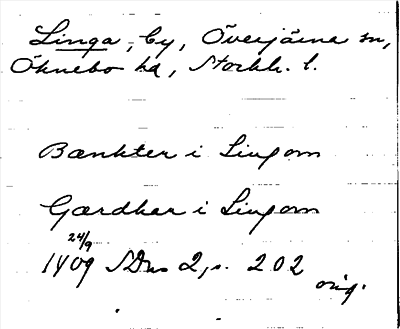 Linga, by, Överjärna sn,
Öknebo hd, Stockh. l.
Bænkter i Lingom
Gærdker i Lingom
24/9
1409 SDns 2, s. 202
orig.